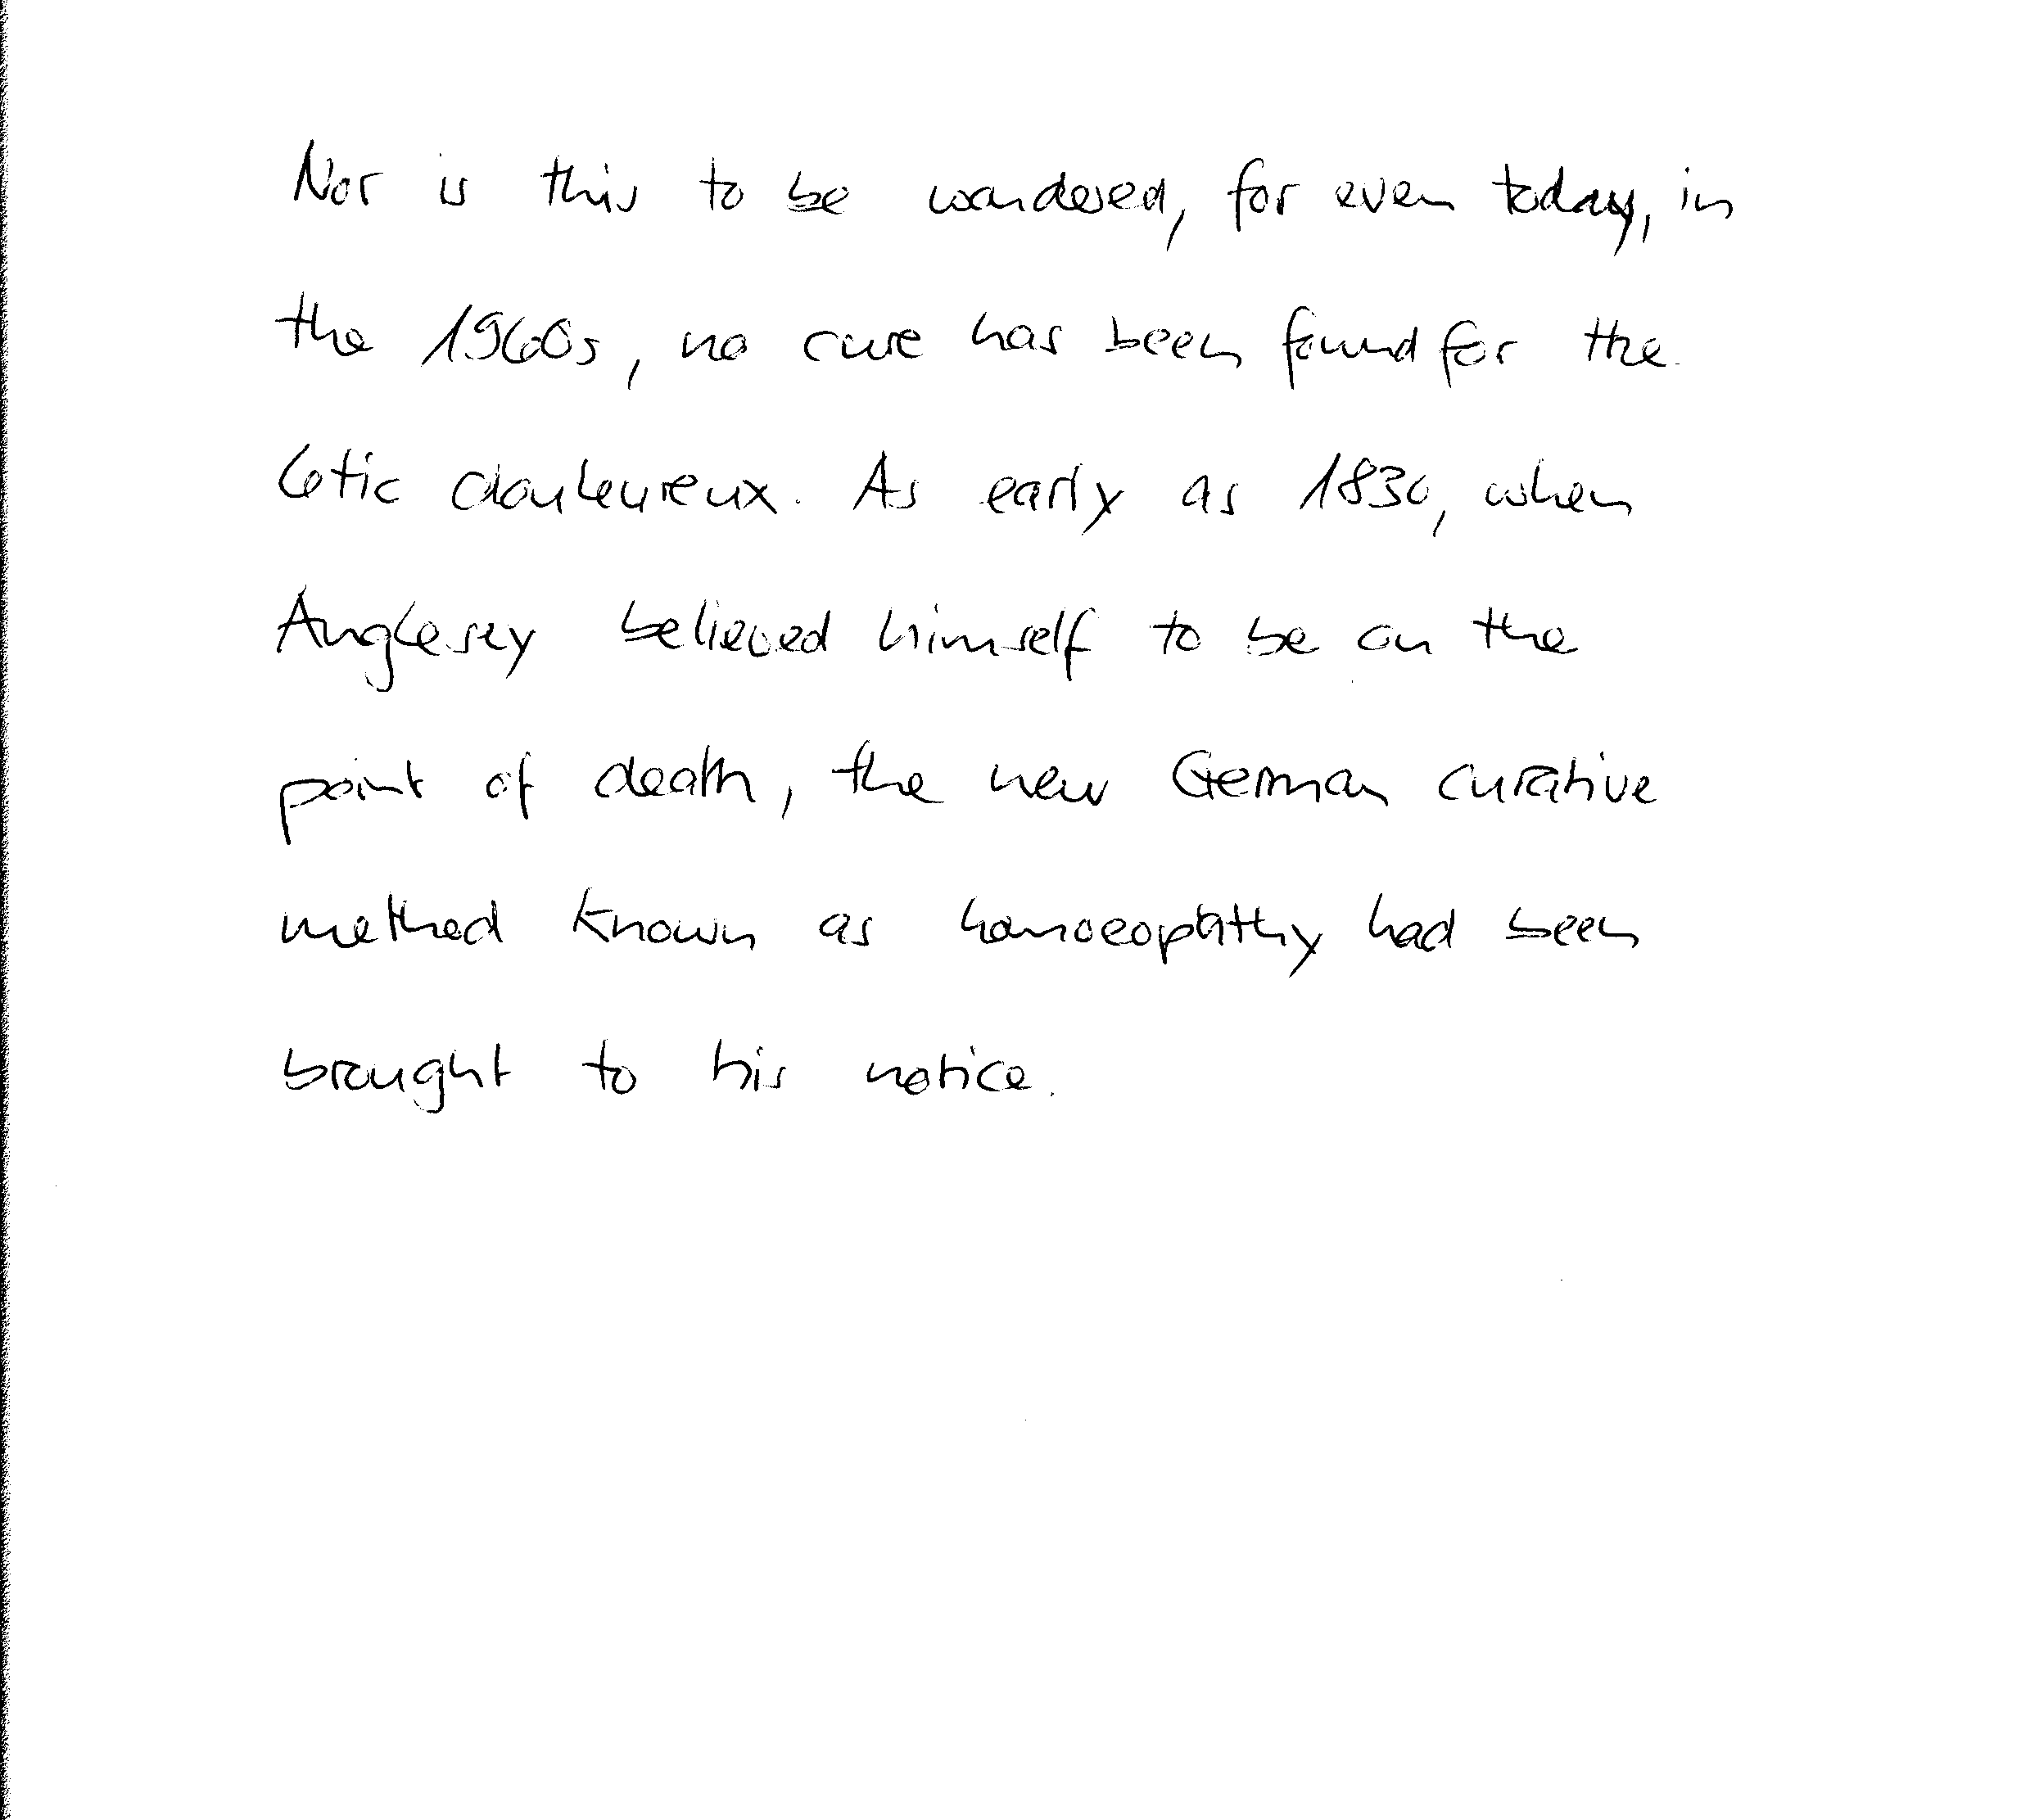 Nor is this to be wondered, for even today, in
the 1960s, no cure has been found for the
6tic douleureux. As early as 1830, when
Anglesey believed himself to be on the
point of death, the new German curative
method known as homoeopathy had been
brought to his notice.